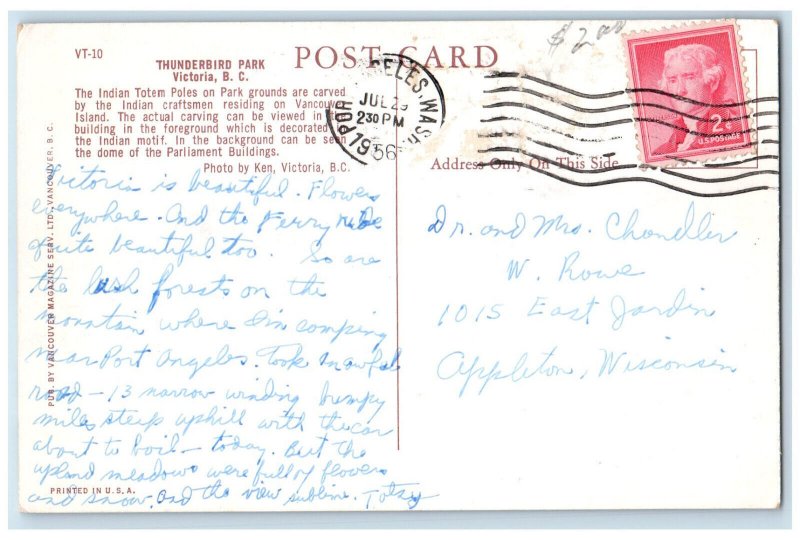 $ 2.00
VT-10
THUNDERBIRD PARK
Victoria, B. C.
POST CARD
The Indian Totem Poles on Park grounds are carved
by the Indian craftsmen residing on Vancouver
Island. The actual carving can be viewed in the
building in the foreground which is decorated
the Indian motif. In the background can be seen
the dome of the Parliament Buildings.
Photo by Ken, Victoria, B.C.
POR ELES WASH
JUL 29
2 30 PM
1956
2¢
U.S. POSTAGE
Address Only On This Side
PUB. BY VANCOUVER MAGAZINE SERV. LTD., VANCOUVER, B. C.
Victoria is beautiful. Flowers
everywhere. And the ferry ride
quite beautiful too. So are
the lush forests on the
mountain where I'm camping
near Port Angeles. Took an awful
road - 13 narrow winding bumpy
miles steep uphill with the car
about to boil - today. But the
upland meadows were full of flowers
and snow. And the view sublime.
Dr. and Mrs. Chandler
W. Rowe
1015 East Jardin
Appleton, Wisconsin
PRINTED IN U.S.A.